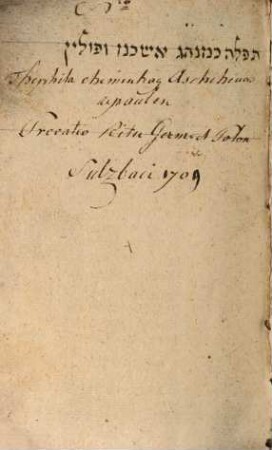 תפלה כמנהג אשכנז ופולין
Thephila cheminhag Aschchenas
upaulen
Precatio Ritu Germ. et Polon
Sulzbaci 1709